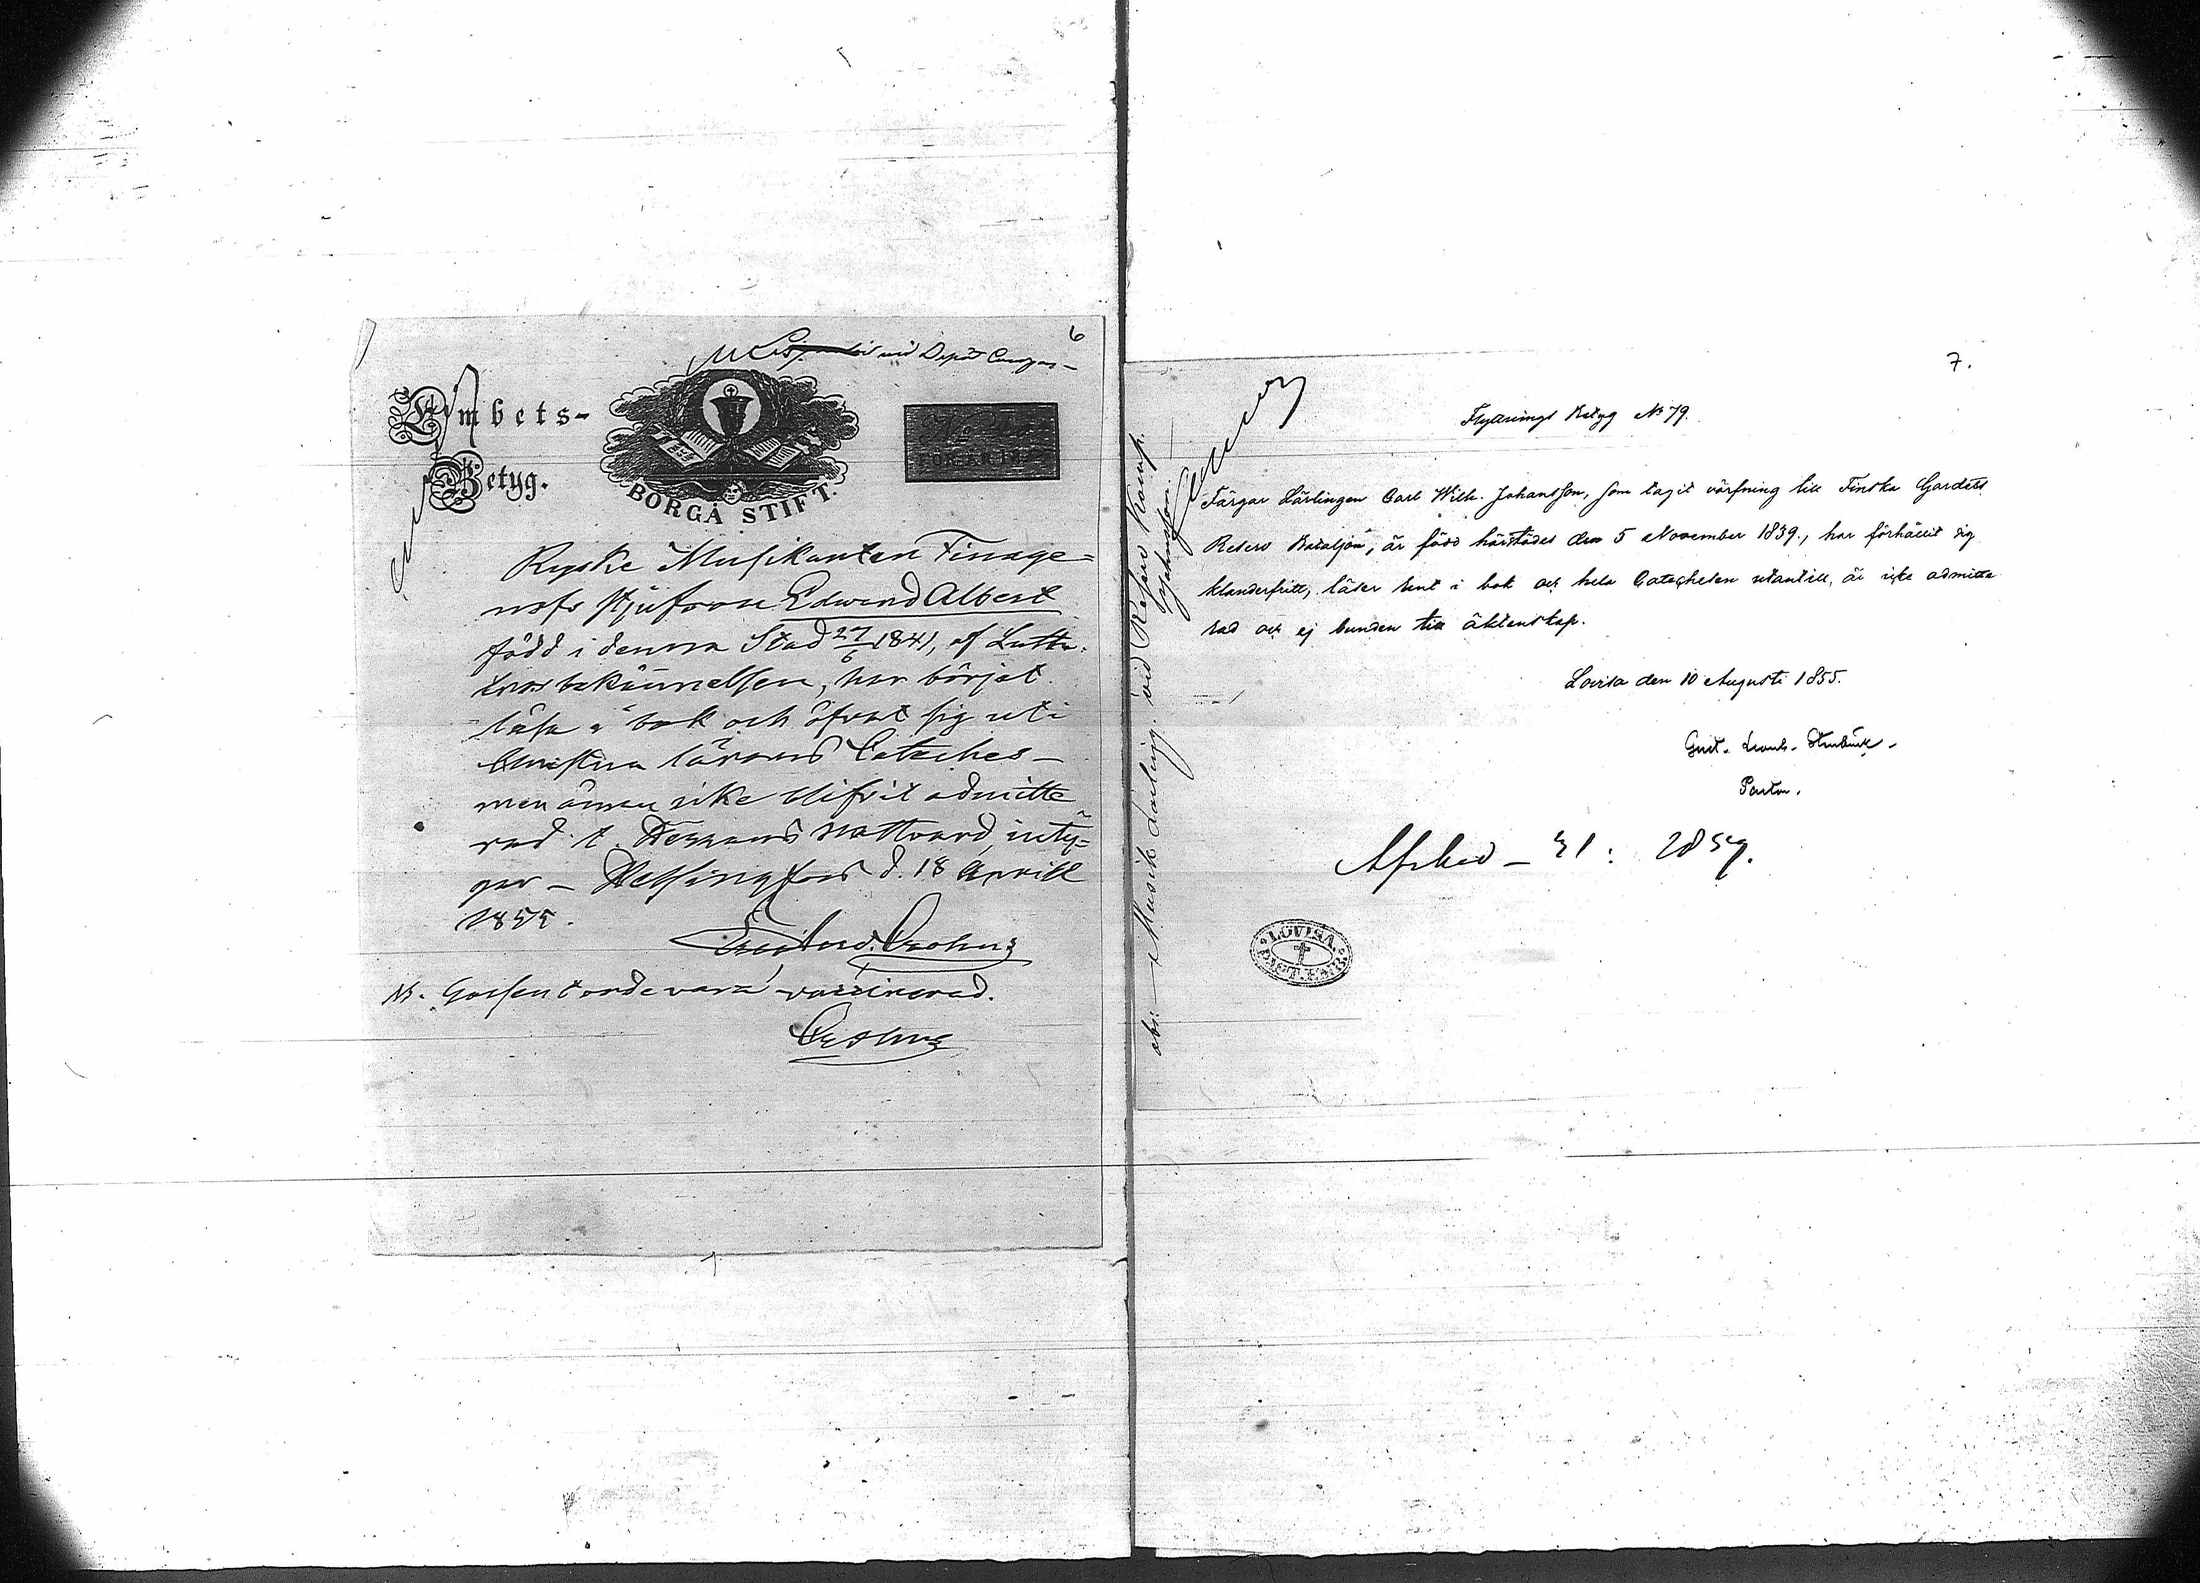 6
vid Depôt Compan-
Embets-
Betyg.
BORGÅ STIFT.
Ryske Musikanten Finage=
noffs styfson Edward Albert
född i denna Stad 27/6 1841, af Luthe-
bekännelsen, har börjat
läsa i bok och öfvat sig uti
Christna lärans Cateches-
men ännu icke blifvit admitte
rad t. Herrans Nattvard, inty=
gar - Helsingfors d. 18 April
1855.
Nb. Gossen torde vara vaccinerad.
7.
Flyttnings Betyg No 79.
Färgar Lärlingen Carl Wilh. Johansson, som tagit värfning till Finska Gardets
Reserv Bataljon, är född härstädes den 5 November 1839, har förhållit sig
klanderfritt, läser rent i bok och hela Catechesen utantill, är icke admitte
rad och ej bunden till äktenskap.
Lovisa den 10 Augusti 1855.
Gust.
Pastor.
Afsked - 31:
LOVISA
PAST. EMB.
obs: Musik Lärling. vid Reserv Komp.